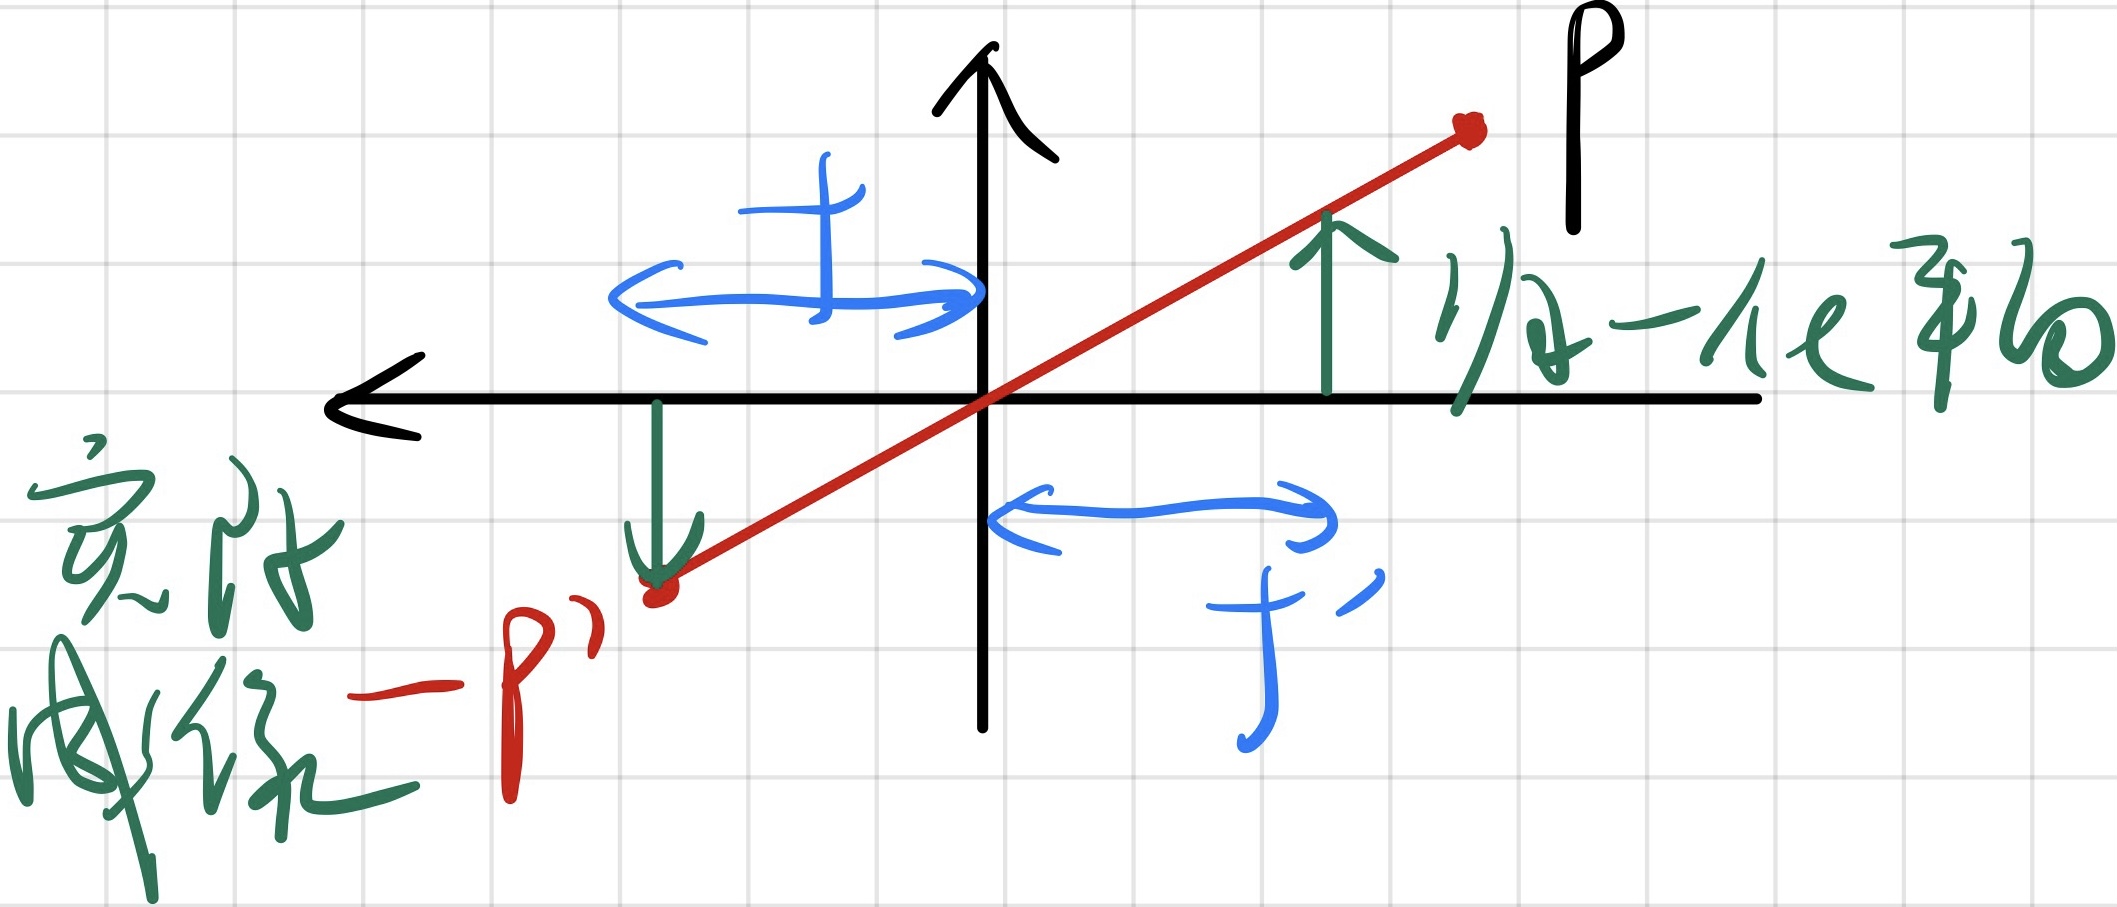 P
f
归一化平面
实际
成像
-P'
f'